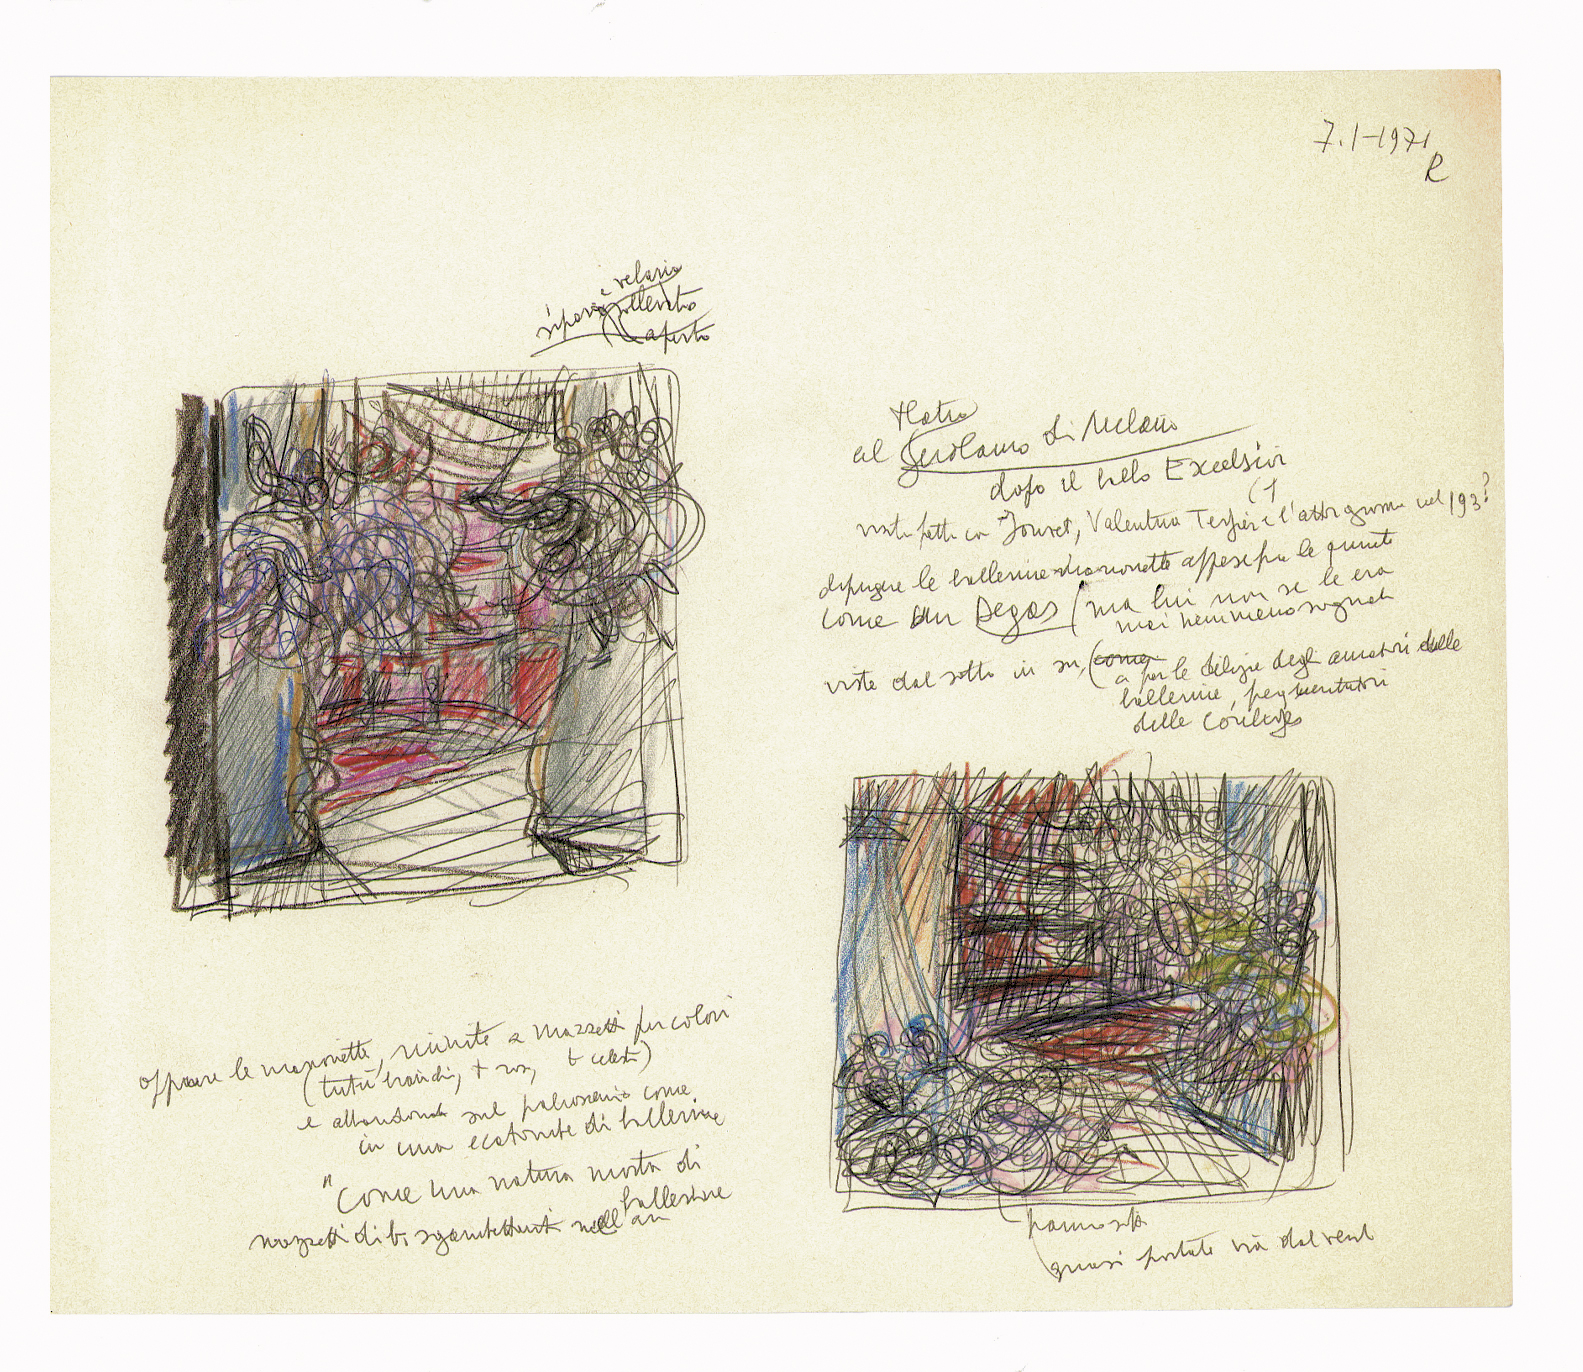 7.1-1971
R
velario
sipario sollevato
aperto
teatro
al Gerolamo di Milano
dopo il ballo Excelsior
(1
Jouvet, Valentina Tessier e l'attor giovane nel 193?
dipingere le ballerine marionette appese fra le quinte
come un Degas (ma lui non se le era
mai nemmeno sognate
viste dal sotto in su, (come
a per le delizie degli amatori delle
ballerine,
delle
oppure le marionette, riunite a mazzetti per colori
(tutù bianchi, + rosa, + celesti)
e abbandonate sul palcoscenico come
in una ecatombe di ballerine
"Come una natura morta di
ballerine
mazzetti di b. sgambettanti nell'aria
quasi portate via dal vento